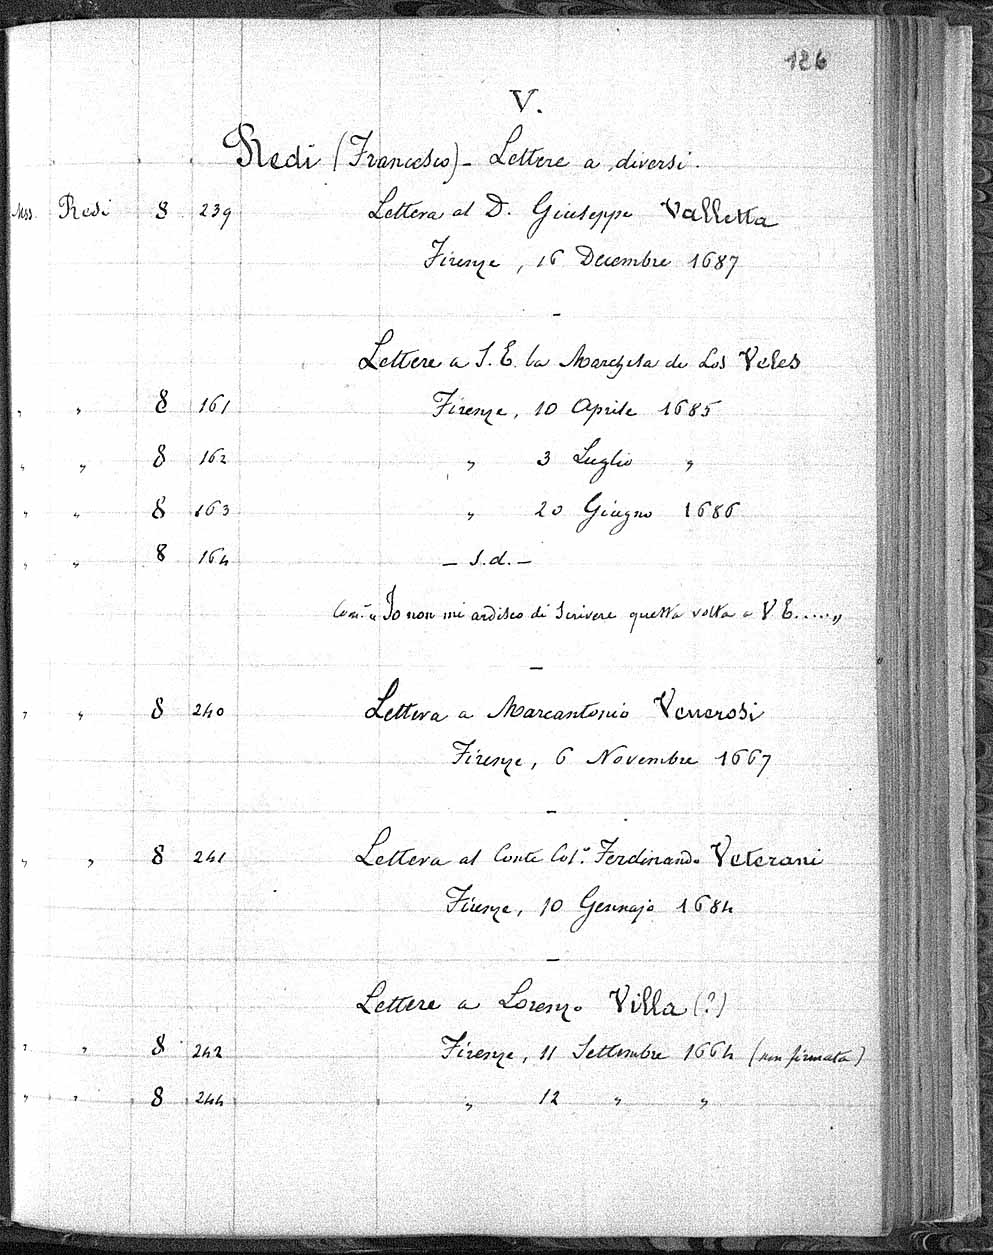 126
V.
Redi (Francesco) - Lettere a diversi.
Mss. Redi 8 239 Lettera al D. Giuseppe Valletta
Firenze, 16 Decembre 1687
–
Lettere a S. E. la Marchesa de Los Veles
„ „ 8 161 Firenze, 10 Aprile 1685
„ „ 8 162 „ 3 Luglio „
„ „ 8 163 „ 20 Giugno 1686
„ „ 8 164 – s.d. –
Com.ª „ Io non mi ardisco di scrivere questa volta a V E.....„
–
„ „ 8 240 Lettera a Marcantonio Venerosi
Firenze, 6 Novembre 1667
–
„ „ 8 241 Lettera al Conte Col.º Ferdinando Veterani
Firenze, 10 Gennajo 1684
–
Lettere a Lorenzo Villa (?)
„ „ 8 242 Firenze, 11 Settembre 1664 (non firmata)
„ „ 8 244 „ 12 „ „